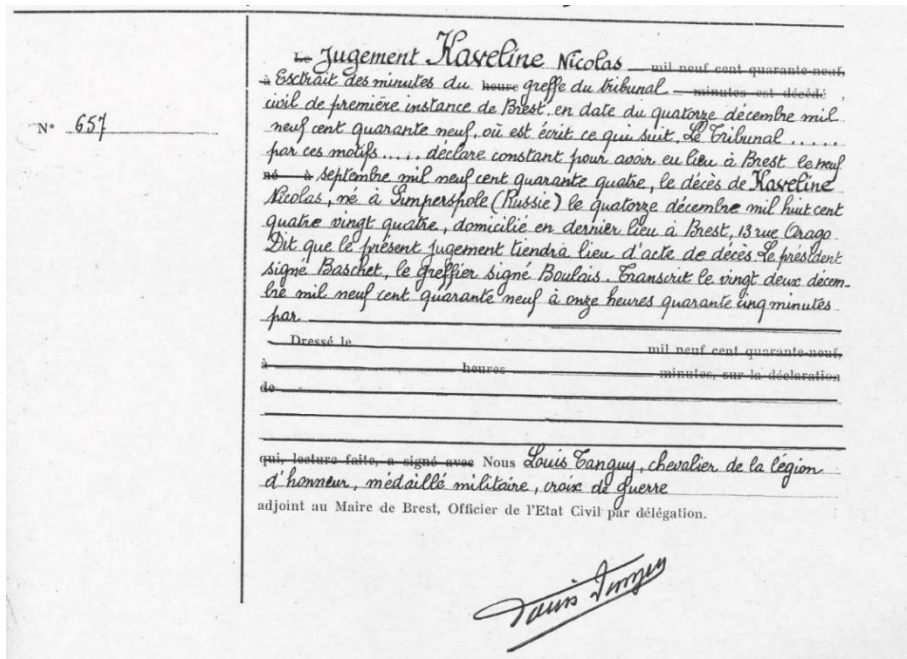 Le Jugement Kaveline Nicolas mil neuf cent quarante-neuf,
à Esctrait des minutes du heure greffe du tribunal minutes est décédé,
civil de première instance de Brest, en date du quatorze décembre mil
N° 657 neuf cent quarante neuf, où est écrit ce qui suit. Le Tribunal .....
par ces motifs ..... déclare constant pour avoir eu lieu à Brest le neuf
né à septembre mil neuf cent quarante quatre, le décès de Kaveline
Nicolas, né à Simperspole (Russie) le quatorze décembre mil huit cent
quatre vingt quatre, domicilié en dernier lieu à Brest, 13 rue Arago
Dit que le présent jugement tiendra lieu d'acte de décès. Le président
signé Baschet, le greffier signé Boulais. Transcrit le vingt deux décem-
bre mil neuf cent quarante neuf à onze heures quarante cinq minutes
par
Dressé le mil neuf cent quarante-neuf,
à heures minutes, sur la déclaration
de
qui, lecture faite, a signé avec Nous Louis Tanguy, chevalier de la légion
d'honneur, médaillé militaire, croix de guerre
adjoint au Maire de Brest, Officier de l'Etat Civil par délégation.
Louis Tanguy